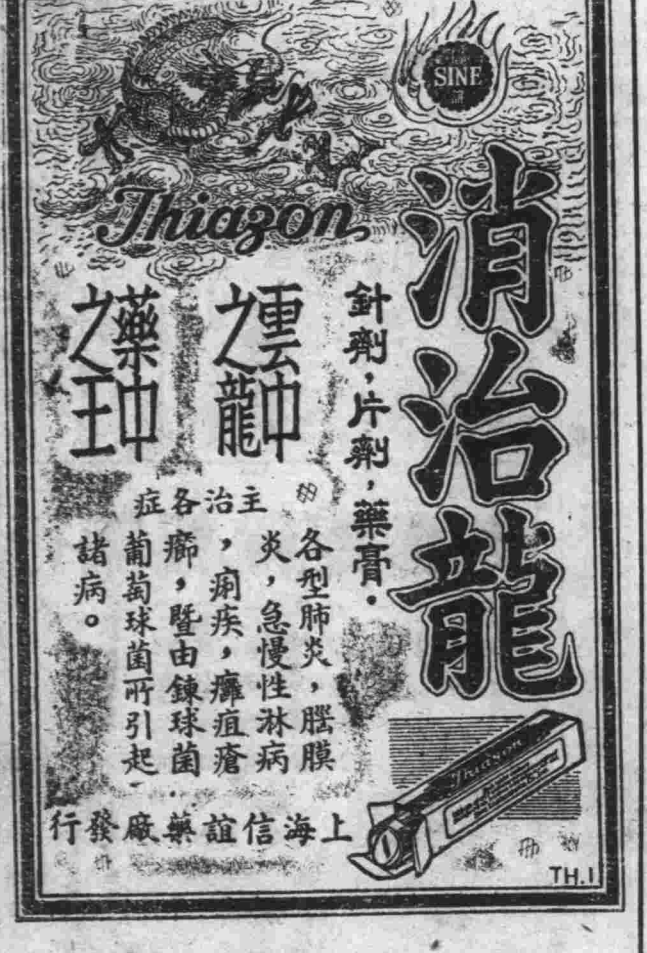 SINE
Thiazon
消治龍
針劑，片劑，藥膏。
雲中
之龍
藥中
之王
主治各症
各型肺炎，腦膜
炎，急慢性淋病
，痢疾，癰疽瘡
癤，暨由鍊球菌
葡萄球菌所引起
諸病。
Thiazon
上海信誼藥廠發行
TH.1